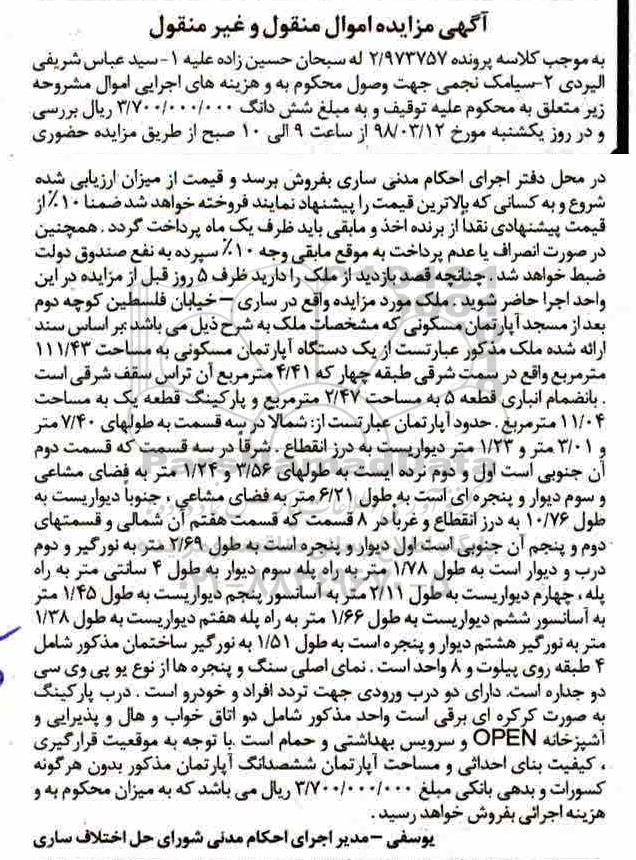 آگهی مزایده اموال منقول و غیر منقول
به موجب کلاسه پرونده ۲/۹۷۳۷۵۷ له سبحان حسین زاده علیه ۱-سید عباس شریفی
الیردی ۲-سیامک نجمی جهت وصول محکوم به و هزینه های اجرایی اموال مشروحه
زیر متعلق به محکوم علیه توقیف و به مبلغ شش دانگ ۳/۷۰۰/۰۰۰/۰۰۰ ریال بررسی
و در روز یکشنبه مورخ ۹۸/۰۳/۱۲ از ساعت ۹ الی ۱۰ صبح از طریق مزایده حضوری
در محل دفتر اجرای احکام مدنی ساری بفروش برسد و قیمت از میزان ارزیابی شده
شروع و به کسانی که بالاترین قیمت را پیشنهاد نمایند فروخته خواهد شد ضمنا ۱۰٪ از
قیمت پیشنهادی نقداً از برنده اخذ و مابقی باید ظرف یک ماه پرداخت گردد . همچنین
در صورت انصراف یا عدم پرداخت به موقع مابقی وجه ۱۰٪ سپرده به نفع صندوق دولت
ضبط خواهد شد . چنانچه قصد بازدید از ملک را دارید ظرف ۵ روز قبل از مزایده در این
واحد اجرا حاضر شوید . ملک مورد مزایده واقع در ساری – خیابان فلسطین کوچه دوم
بعد از مسجد آپارتمان مسکونی که مشخصات ملک به شرح ذیل می باشد :بر اساس سند
ارائه شده ملک مذکور عبارتست از یک دستگاه آپارتمان مسکونی به مساحت ۱۱۱/۴۳
مترمربع واقع در سمت شرقی طبقه چهار که ۴/۴۱ مترمربع آن تراس سقف شرقی است
. بانضمام انباری قطعه ۵ به مساحت ۲/۴۷ مترمربع و پارکینگ قطعه یک به مساحت
۱۱/۰۴ مترمربع . حدود آپارتمان عبارتست از: شمالا در سه قسمت به طولهای ۷/۴۰ متر
و ۳/۰۱ متر و ۱/۲۳ متر دیواریست به درز انقطاع . شرقاً در سه قسمت که قسمت دوم
آن جنوبی است اول و دوم نرده ایست به طولهای ۳/۵۶ و ۱/۲۴ متر به فضای مشاعی
و سوم دیوار و پنجره ای است به طول ۶/۲۱ متر به فضای مشاعی ، جنوباً دیواریست به
طول ۱۰/۷۶ به درز انقطاع و غرباً در ۸ قسمت که قسمت هفتم آن شمالی و قسمتهای
دوم و پنجم آن جنوبی است اول دیوار و پنجره است به طول ۲/۶۹ متر به نورگیر و دوم
درب و دیوار است به طول ۱/۷۸ متر به راه پله سوم دیوار به طول ۴ سانتی متر به راه
پله ، چهارم دیواریست به طول ۲/۱۱ متر به آسانسور پنجم دیواریست به طول ۱/۴۵ متر
به آسانسور ششم دیواریست به طول ۱/۶۶ متر به راه پله هفتم دیواریست به طول ۱/۳۸
متر به نورگیر هشتم دیوار و پنجره است به طول ۱/۵۱ به نورگیر ساختمان مذکور شامل
۴ طبقه روی پیلوت و ۸ واحد است . نمای اصلی سنگ و پنجره ها از نوع یو پی وی سی
دو جداره است. دارای دو درب ورودی جهت تردد افراد و خودرو است . درب پارکینگ
به صورت کرکره ای برقی است واحد مذکور شامل دو اتاق خواب و هال و پذیرایی و
آشپزخانه OPEN و سرویس بهداشتی و حمام است .با توجه به موقعیت قرارگیری
، کیفیت بنای احداثی و مساحت آپارتمان ششصدانگ آپارتمان مذکور بدون هرگونه
کسورات و بدهی بانکی مبلغ ۳/۷۰۰/۰۰۰/۰۰۰ ریال می باشد که به میزان محکوم به و
هزینه اجرائی بفروش خواهد رسید .
یوسفی – مدیر اجرای احکام مدنی شورای حل اختلاف ساری